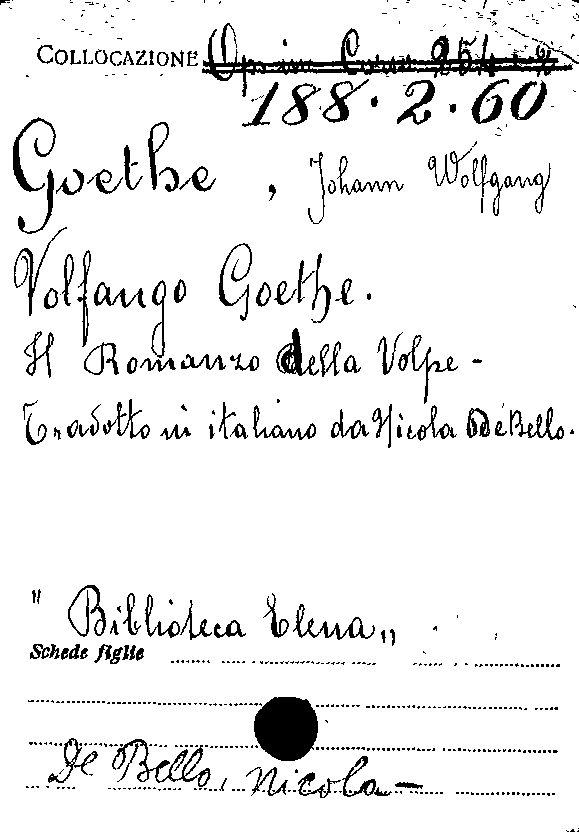 COLLOCAZIONE
188.2.60
Goethe, Johann Wolfgang
Volfango Goethe.
Il Romanzo della Volpe -
Tradotto in italiano da Nicola De Bello.
"Biblioteca Elena„
Schede figlie
De Bello, Nicola -